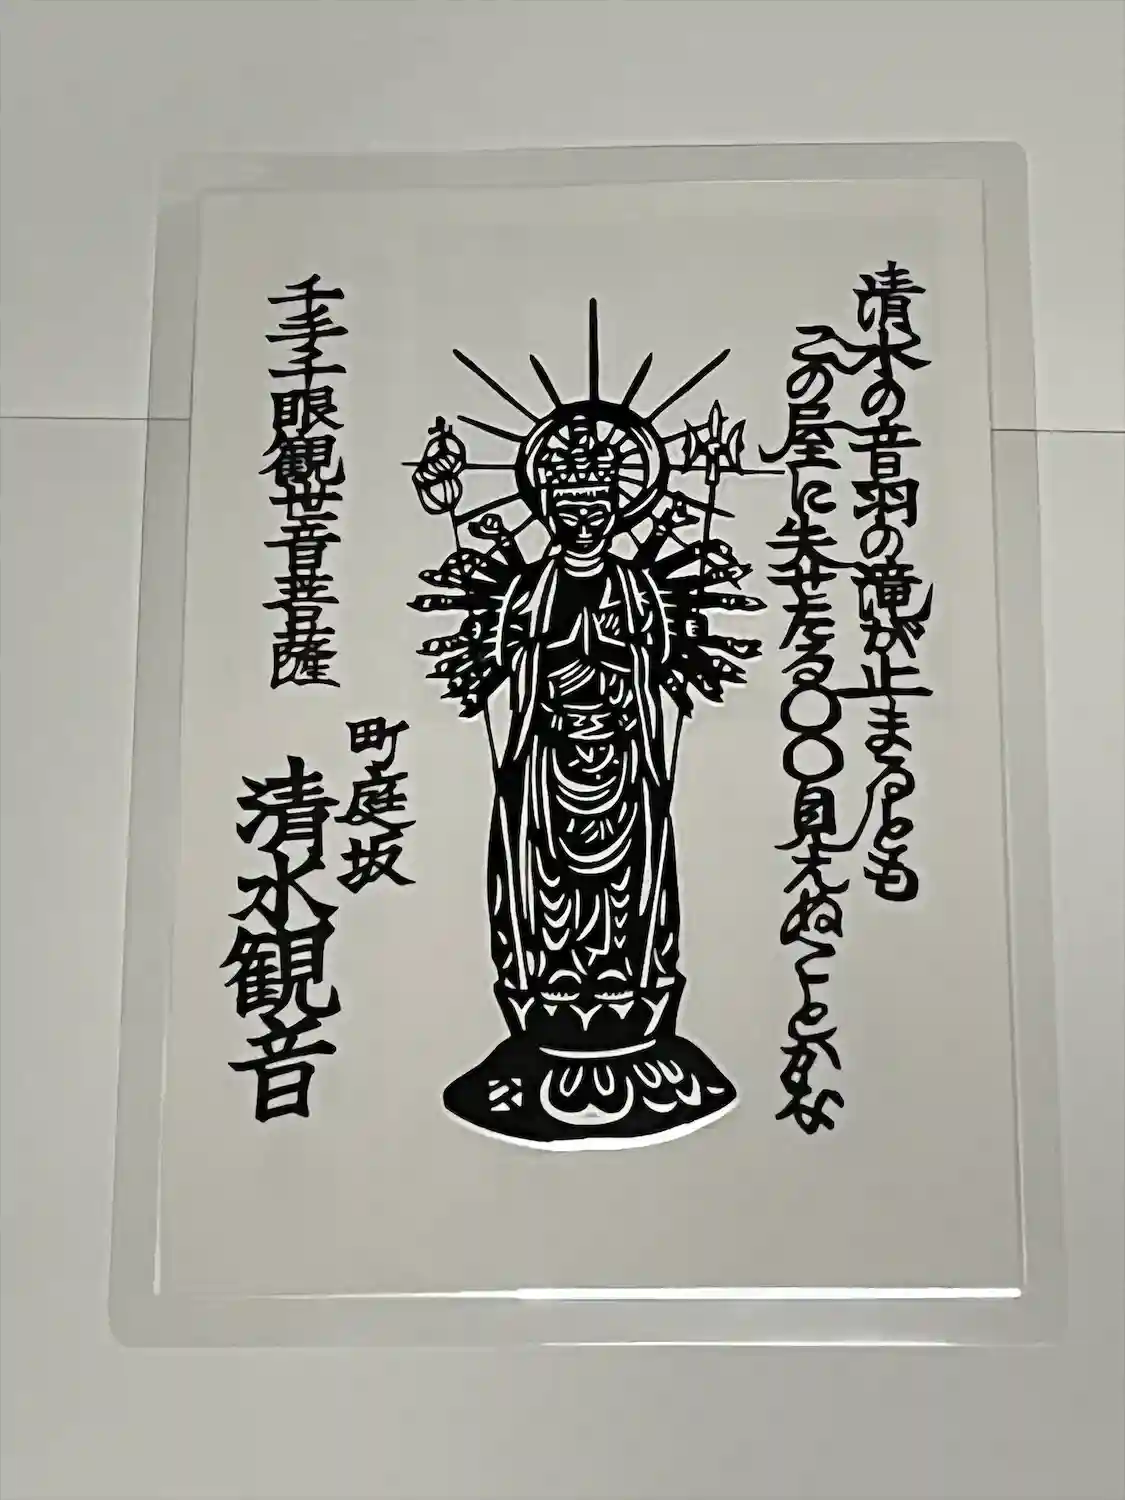 清水の音羽の滝が止まるとも
この屋に失せたる○○見えぬことかな
千手千眼観世音菩薩
町庭坂
清水観音